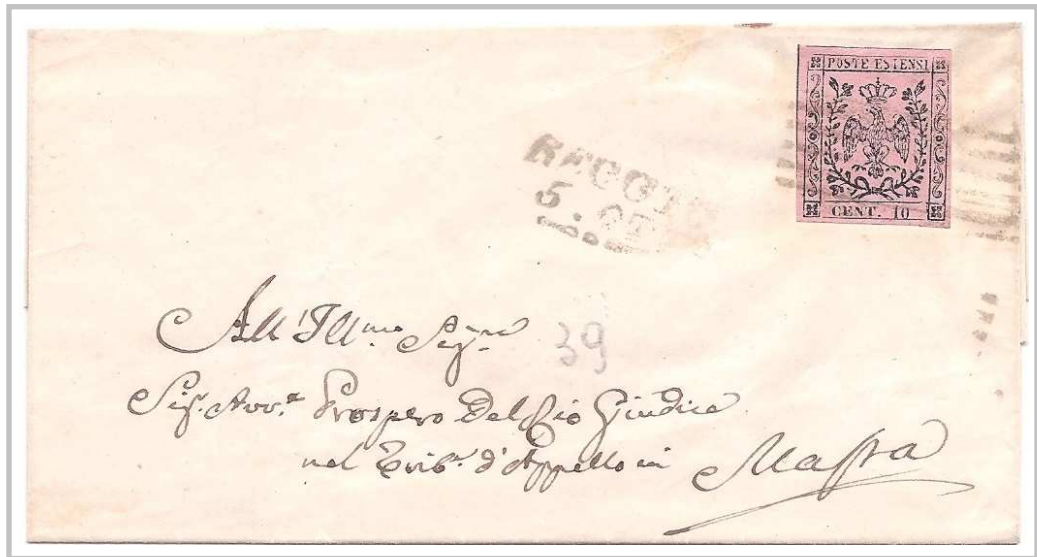 POSTE ESTENSI
CENT. 10
REGGIO
5. OT
39
All'Ill.mo Sig.re
Sig. Avv.o Prospero Del Rio Giudice
nel Trib.e d'Appello in Massa